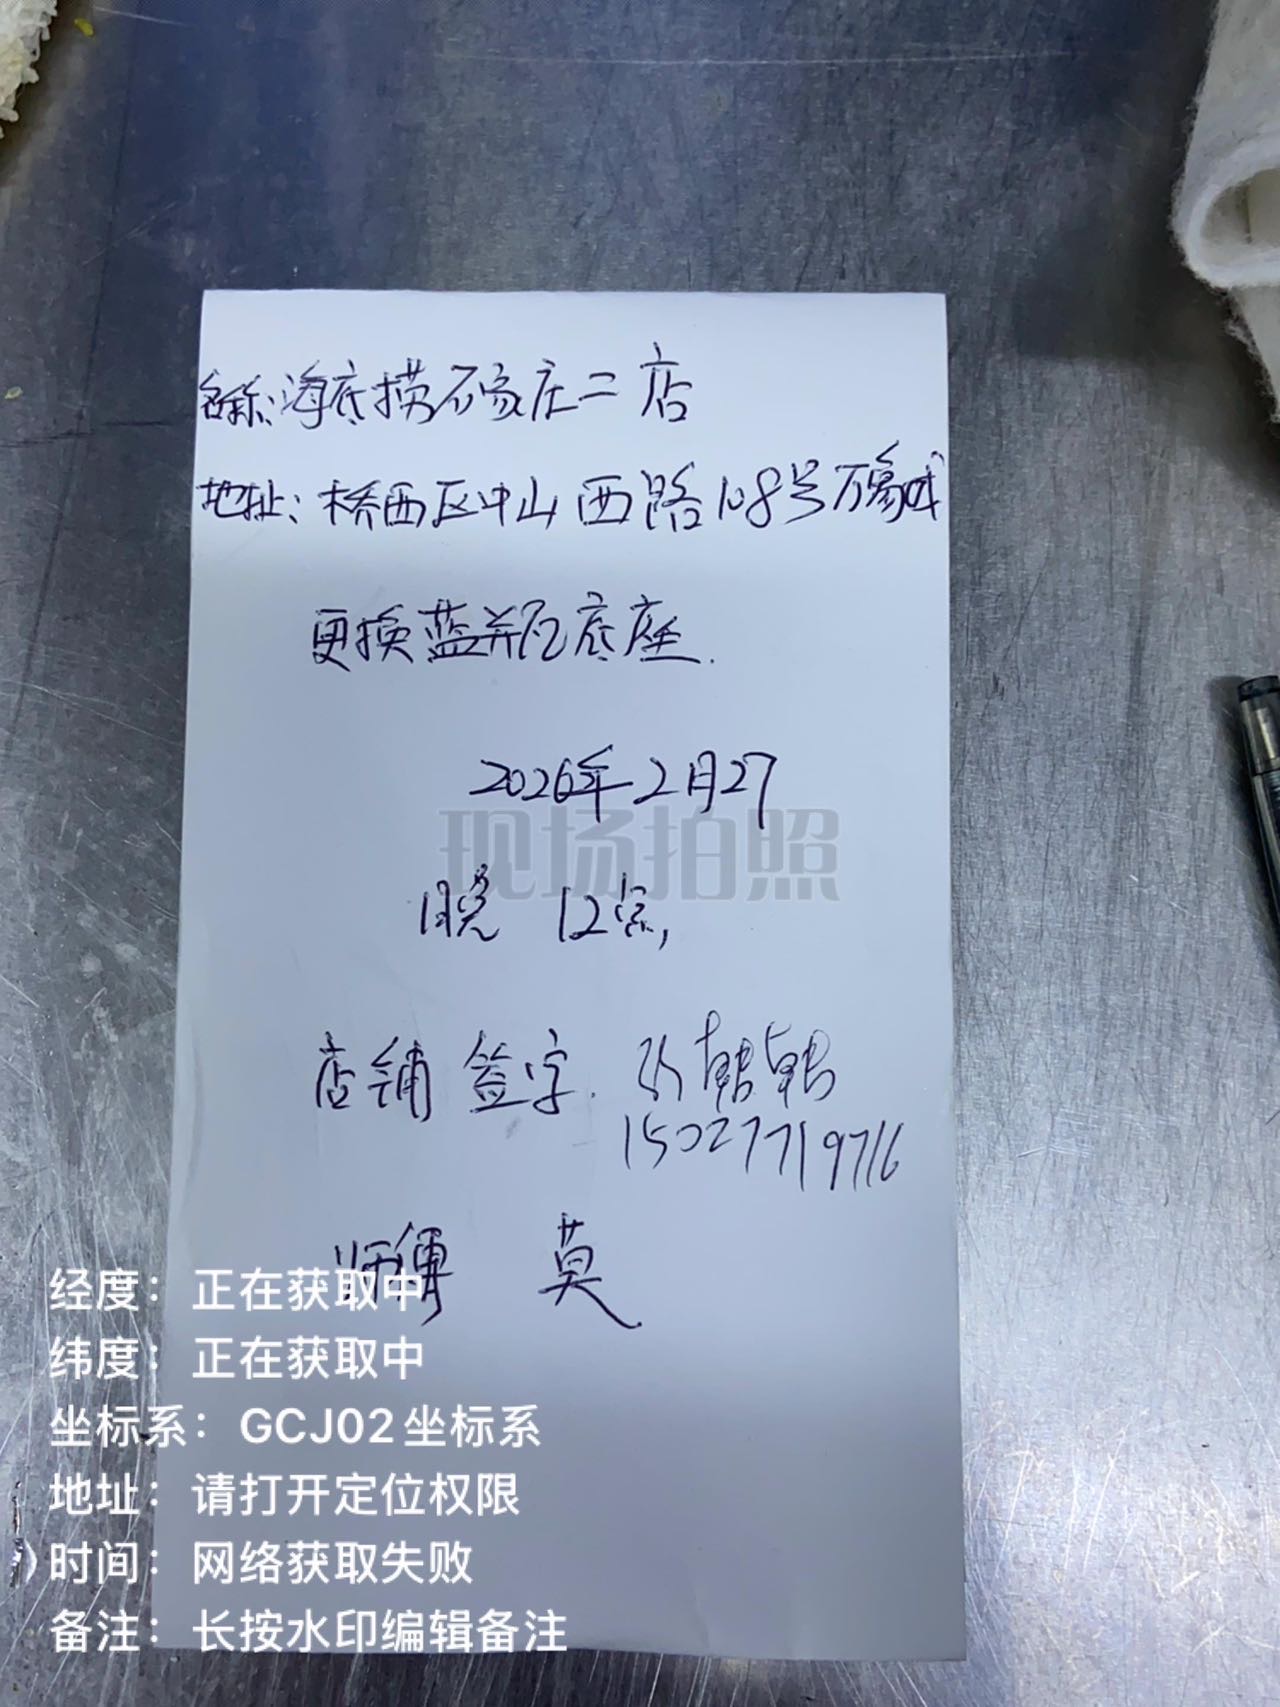 名称:海底捞石家庄二店
地址:桥西区中山西路108号万象城
更换蓝瓶底座.
2026年2月27
现场拍照
晚 12点,
店铺 签字.
15027719716
师傅 莫
经度：正在获取中
纬度：正在获取中
坐标系：GCJ02坐标系
地址：请打开定位权限
时间：网络获取失败
备注：长按水印编辑备注